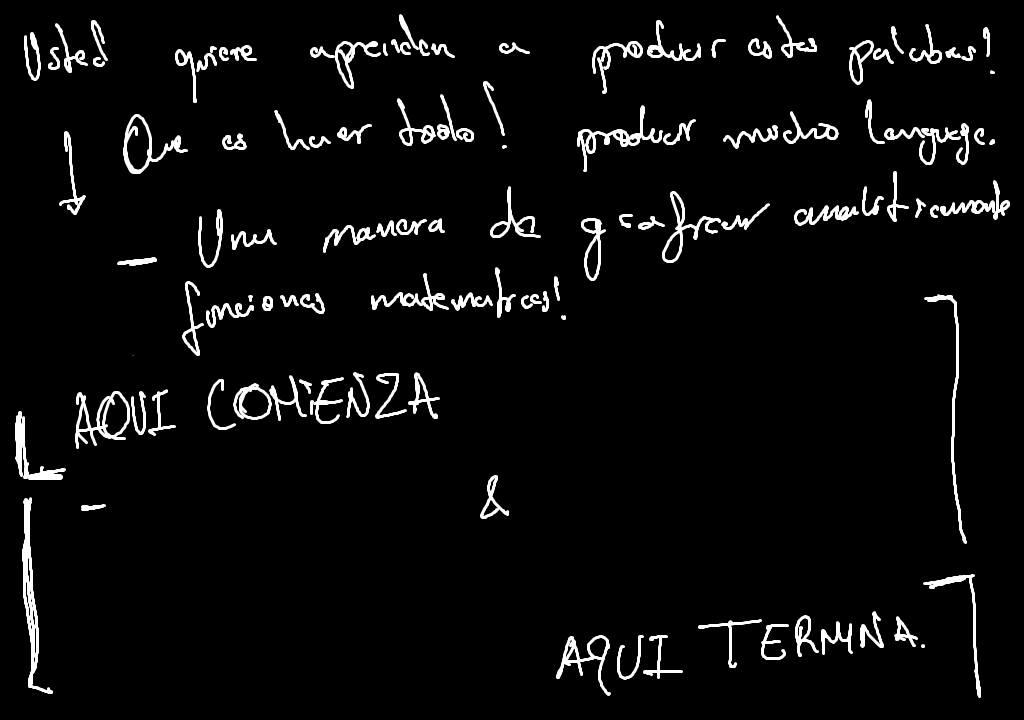 Usted quiere aprender a producir estas palabras!
Que es hacer todo! producir mucho language.
- Una manera de graficar analiticamente
funciones matematicas!
AQUI COMIENZA
- &
AQUI TERMINA.